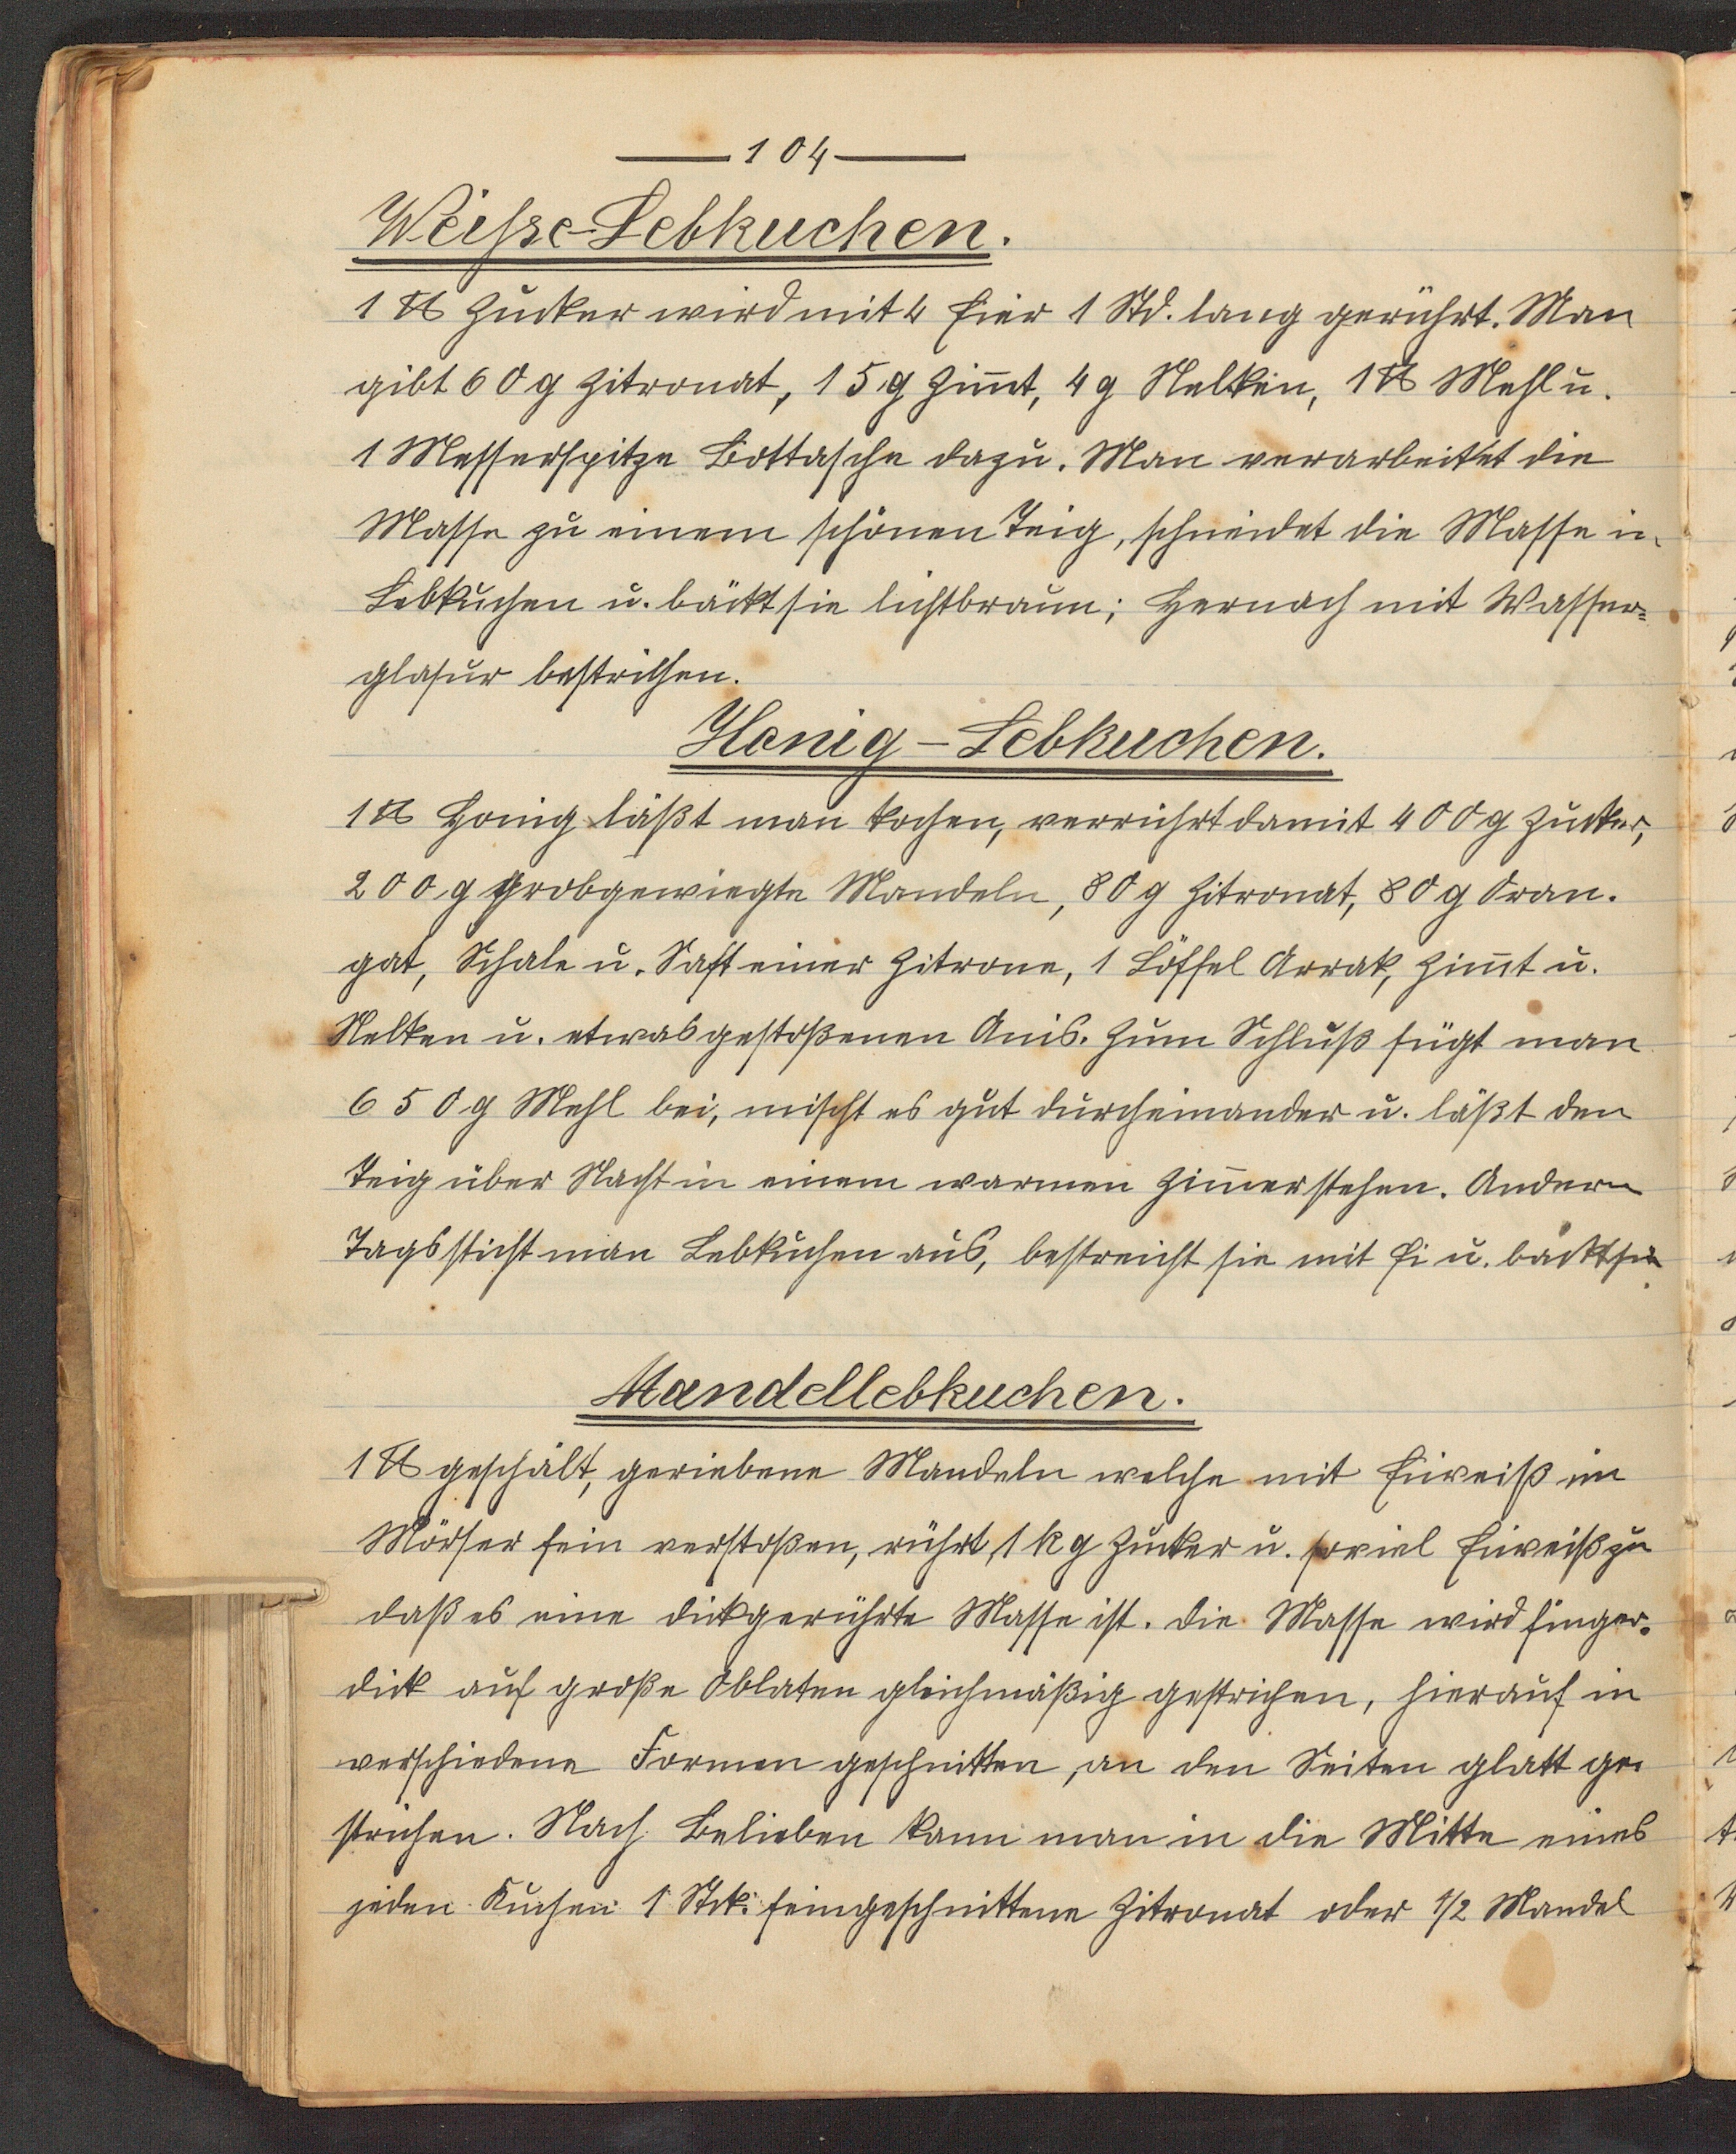 — 104 —
Weisse-Lebkuchen.
1 ℔ Zucker wird mit 4 Eier 1 Std. lang gerührt. Man
gibt 60 g Zitronat, 15 g Zim̅t, 4 g Nelken, 1 ℔ Mehl u.
1 Messerspitze Bottasche dazu. Man verarbeitet die
Masse zu einem schönen Teig, schneidet die Masse in
Lebkuchen u. bäckt sie lichtbraun; Hernach mit Wasser=
glasur bestrichen.
Honig-Lebkuchen.
1 ℔ Honig läßt man kochen, verrührt damit 400 g Zucker,
200 g grobgewiegte Mandeln, 80 g Zitronat, 80 g Oran.
gat, Schale u. Saft einer Zitrone, 1 Löffel Arrak, Zim̅t u.
Nelken u. etwas gestoßenen Anis. Zum Schluß fügt man
650 g Mehl bei, mischt es gut durcheinander u. läßt den
Teig über Nacht in einem warmen Zim̅er stehen. Andern
Tags sticht man Lebkuchen aus, bestreicht sie mit Ei u. backt sie.
Mandellebkuchen.
1 ℔ geschält, geriebene Mandeln welche mit Eiweiß im
Mörser fein verstoßen, rührt 1 kg Zucker u. soviel Eiweiß zu
daß es eine dickgerührte Masse ist. Die Masse wird finger.
dick auf große Oblaten gleichmäßig gestrichen, hierauf in
verschiedene Formen geschnitten, an den Seiten glatt ge.
strichen. Nach Belieben kann man in die Mitte eines
jeden Kuchen 1 Stck. feingeschnittene Zitronat oder 1/2 Mandel